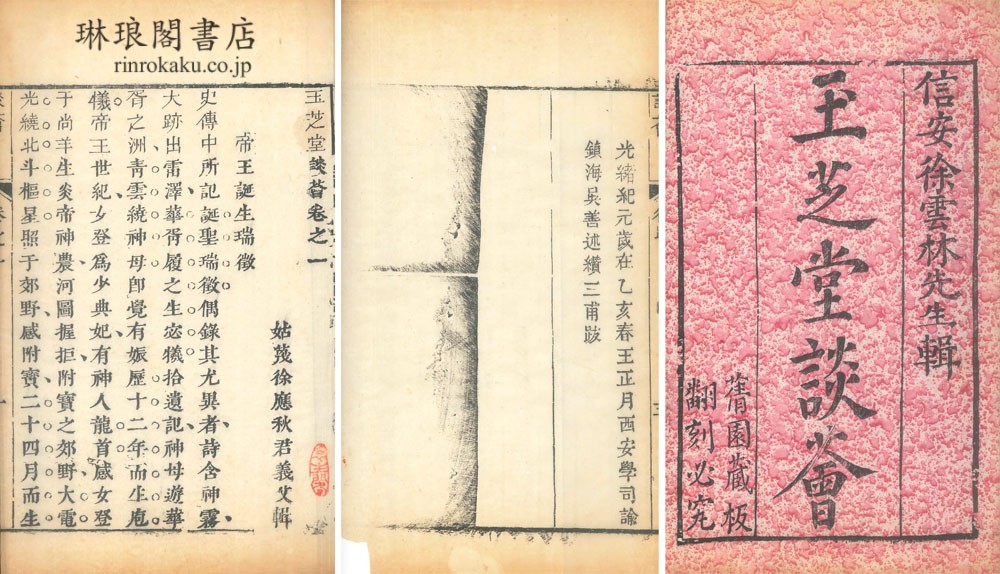 琳琅閣書店
rinrokaku.co.jp
信安徐雲林先生輯
玉芝堂談薈
蒨園藏板
翻刻必究
光緒紀元歲在乙亥春王正月西安學司諭
鎮海吳善述纘三甫跋
玉芝堂談薈卷之一
姑蔑徐應秋君義父輯
帝王誕生瑞徵
史傳中所記誕聖瑞徵偶錄其尤異者詩含神霧
大跡出雷澤華胥履之生宓犧拾遺記神母遊華
胥之洲靑雲繞神母卽覺有娠歷十二年而生庖
儀帝王世紀女登爲少典妃有神人龍首感女登
于尚羊生炎帝神農河圖握拒附寶之郊野大電
光繞北斗樞星照于郊野感附寶二十四月而生